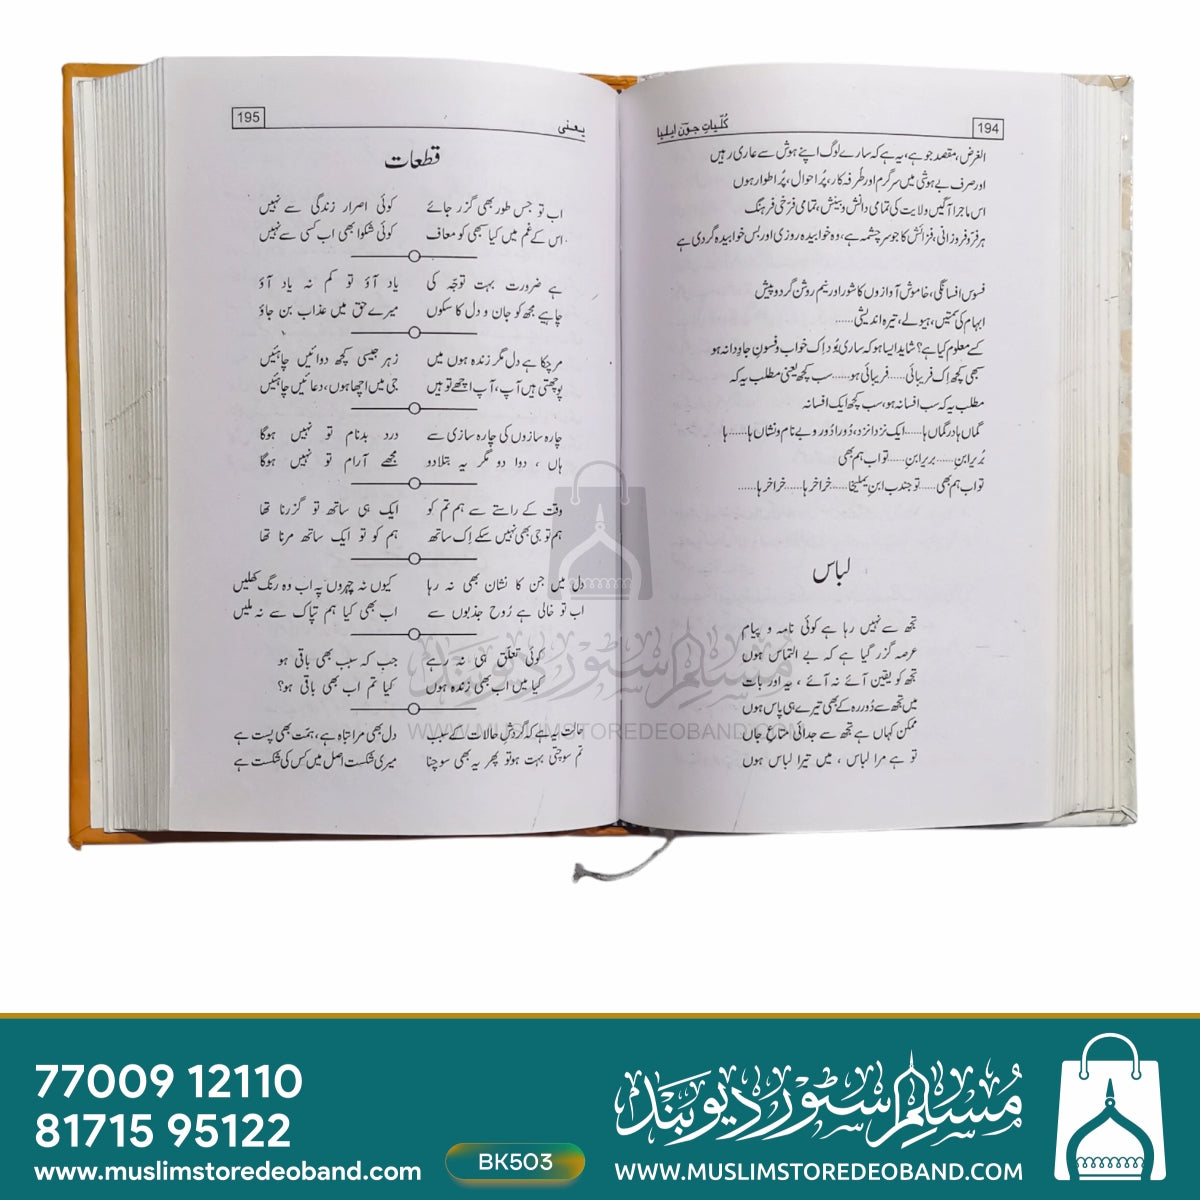 194
کُلّیاتِ جون ایلیا
الغرض، مقصد جو ہے، یہ ہے کہ سارے لوگ اپنے ہوش سے عاری رہیں
اور صرف بے ہوشی میں سرگرم اور طُرفہ کار، پُر احوال، پُر اطوار ہوں
اس ماجرا آگیں ولایت کی تمامی دانش و بینش، تمامی فرّخی فرہنگ
ہر فرّ و فروزانی، فزائش کا جو سرچشمہ ہے، وہ خوابیدہ روزی اور بس خوابیدہ گردی ہے
فسوس افسانگی، خاموش آوازوں کا شور اور نیم روشن گرد و پیش
ابہام کی سمتیں، ہیولے، تیرہ اندیشی......
کسے معلوم کیا ہے؟ شاید ایسا ہو کہ ساری بُود اِک خواب و فسونِ جاودانہ ہو
سبھی کچھ اِک فریبائی.....فریبائی ہو......سب کچھ یعنی مطلب یہ کہ
مطلب یہ کہ سب افسانہ ہو، سب کچھ ایک افسانہ
گماں ہا در گماں ہا......ایک نزدانزد، دُورادُور و بے نام و نشاں ہا......ہا
بُریر ابنِ......بریر ابنِ......تو اب ہم بھی
تو اب ہم بھی.....تو جندب ابنِ یملیخا......خراخر ہا......خراخر ہا
لباس
تجھ سے نہیں رہا ہے کوئی نامہ و پیام
عرصہ گزر گیا ہے کہ بے التماس ہوں
تجھ کو یقین آئے نہ آئے ، یہ اور بات
میں تجھ سے دُور رہ کے بھی تیرے ہی پاس ہوں
ممکن کہاں ہے تجھ سے جدائی متاعِ جاں
تو ہے مرا لباس ، میں تیرا لباس ہوں
یعنی
195
قطعات
اب تو جس طور بھی گزر جائے کوئی اصرار زندگی سے نہیں
اس کے غم میں کیا سبھی کو معاف کوئی شکوا بھی اب کسی سے نہیں
ہے ضرورت بہت توجّہ کی یاد آؤ تو کم نہ یاد آؤ
چاہیے مجھ کو جان و دل کا سکوں میرے حق میں عذاب بن جاؤ
مر چکا ہے دل مگر زندہ ہوں میں زہر جیسی کچھ دوائیں چاہئیں
پوچھتی ہیں آپ، آپ اچھے تو ہیں جی میں اچھا ہوں، دعائیں چاہئیں
چارہ سازوں کی چارہ سازی سے درد بدنام تو نہیں ہوگا
ہاں ، دوا دو مگر یہ بتلا دو مجھے آرام تو نہیں ہوگا
وقت کے راستے سے ہم تم کو ایک ہی ساتھ تو گزرنا تھا
ہم تو جی بھی نہیں سکے اِک ساتھ ہم کو تو ایک ساتھ مرنا تھا
دل میں جن کا نشان بھی نہ رہا کیوں نہ چہروں پہ اب وہ رنگ کھلیں
اب تو خالی ہے رُوح جذبوں سے اب بھی کیا ہم تپاک سے نہ ملیں
کوئی تعلق ہی نہ رہے جب کہ سبب بھی باقی ہو
کیا میں اب بھی زندہ ہوں کیا تم اب بھی باقی ہو؟
حالت یہ ہے کہ گردشِ حالات کے سبب دل بھی مرا تباہ ہے، ہمّت بھی پست ہے
تم سوچتی بہت ہو تو پھر یہ بھی سوچنا میری شکست اصل میں کس کی شکست ہے
مسلم سٹور دیوبند
WWW.MUSLIMSTOREDEOBAND.COM
77009 12110
81715 95122
www.muslimstoredeoband.com
BK503
مسلم سٹور دیوبند
WWW.MUSLIMSTOREDEOBAND.COM